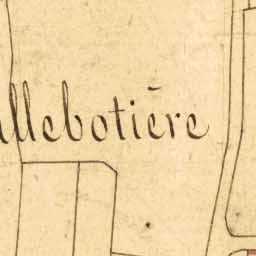 llebotière